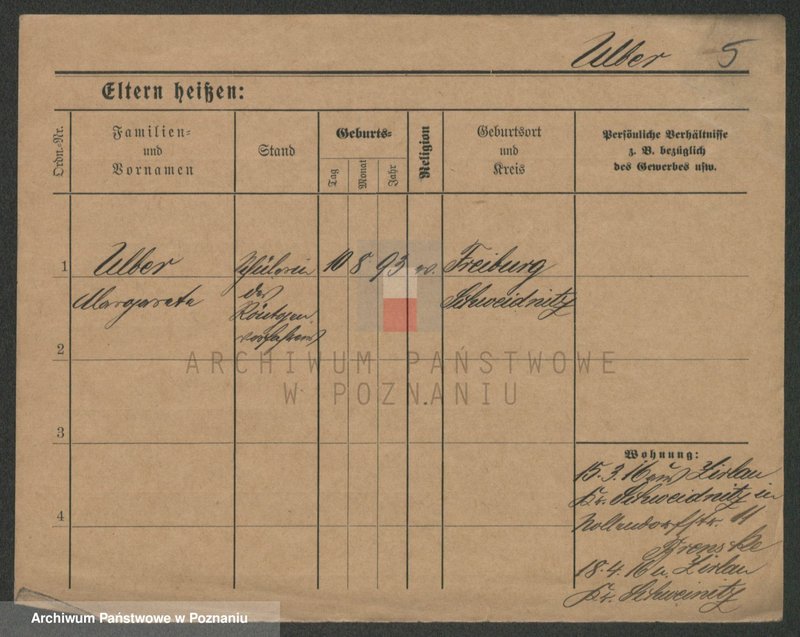 Ulber 5
Eltern heißen:
Ordn.-Nr.
Familien-
und
Vornamen
Stand
Geburts-
Tag
Monat
Jahr
Religion
Geburtsort
und
Kreis
Persönliche Verhältnisse
z. B. bezüglich
des Gewerbes usw.
1 Ulber Schülerin 10 8 93 ev. Freiburg
Margarete des Schweidnitz
Röntgen
verfahrens
2
3
4
Wohnung:
15.3.16 aus Zirlau
Kr. Schweidnitz in
Nollendorfstr. 11
18.4.16 n. Zirlau
Kr. Schweinitz
ARCHIWUM PAŃSTWOWE
W POZNANIU
Archiwum Państwowe w Poznaniu